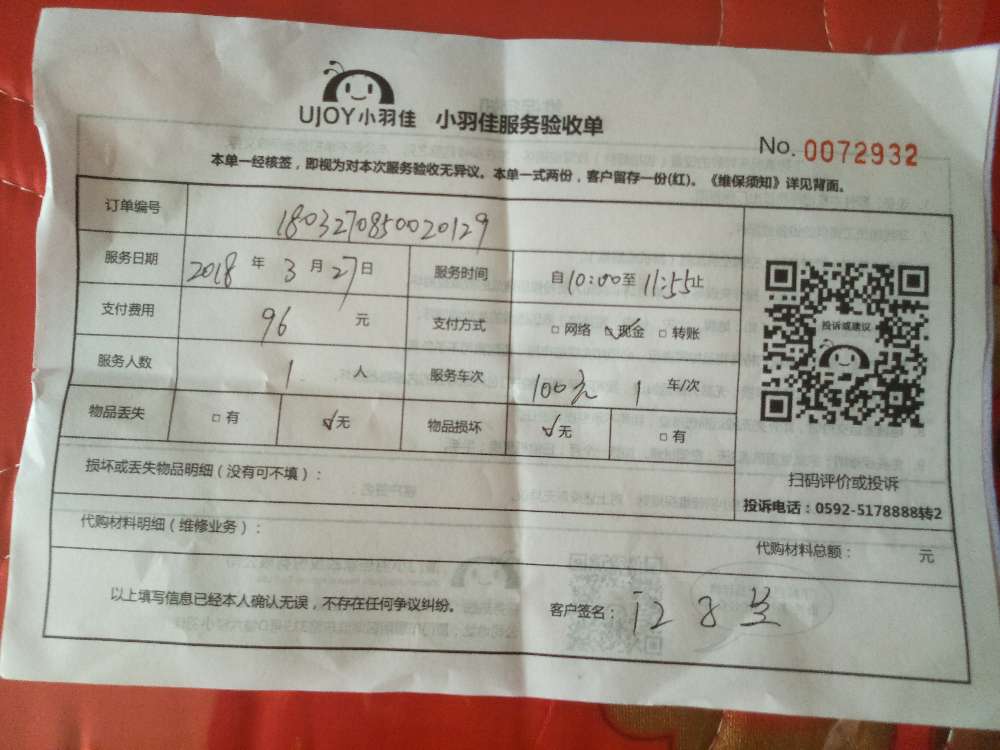 UJOY小羽佳 小羽佳服务验收单
No. 0072932
本单一经核签，即视为对本次服务验收无异议。本单一式两份，客户留存一份(红)。《维保须知》详见背面。
订单编号 1803270850020129
服务日期 2018 年 3 月 27 日 服务时间 自10:00至11:55止
支付费用 96 元 支付方式 □网络 ☑现金 □转账
服务人数 1 人 服务车次 100元 1 车/次
物品丢失 □有 ☑无 物品损坏 ☑无 □有
投诉或建议
扫码评价或投诉
投诉电话：0592-5178888转2
损坏或丢失物品明细（没有可不填）：
代购材料明细（维修业务）：
代购材料总额： 元
以上填写信息已经本人确认无误，不存在任何争议纠纷。
客户签名：